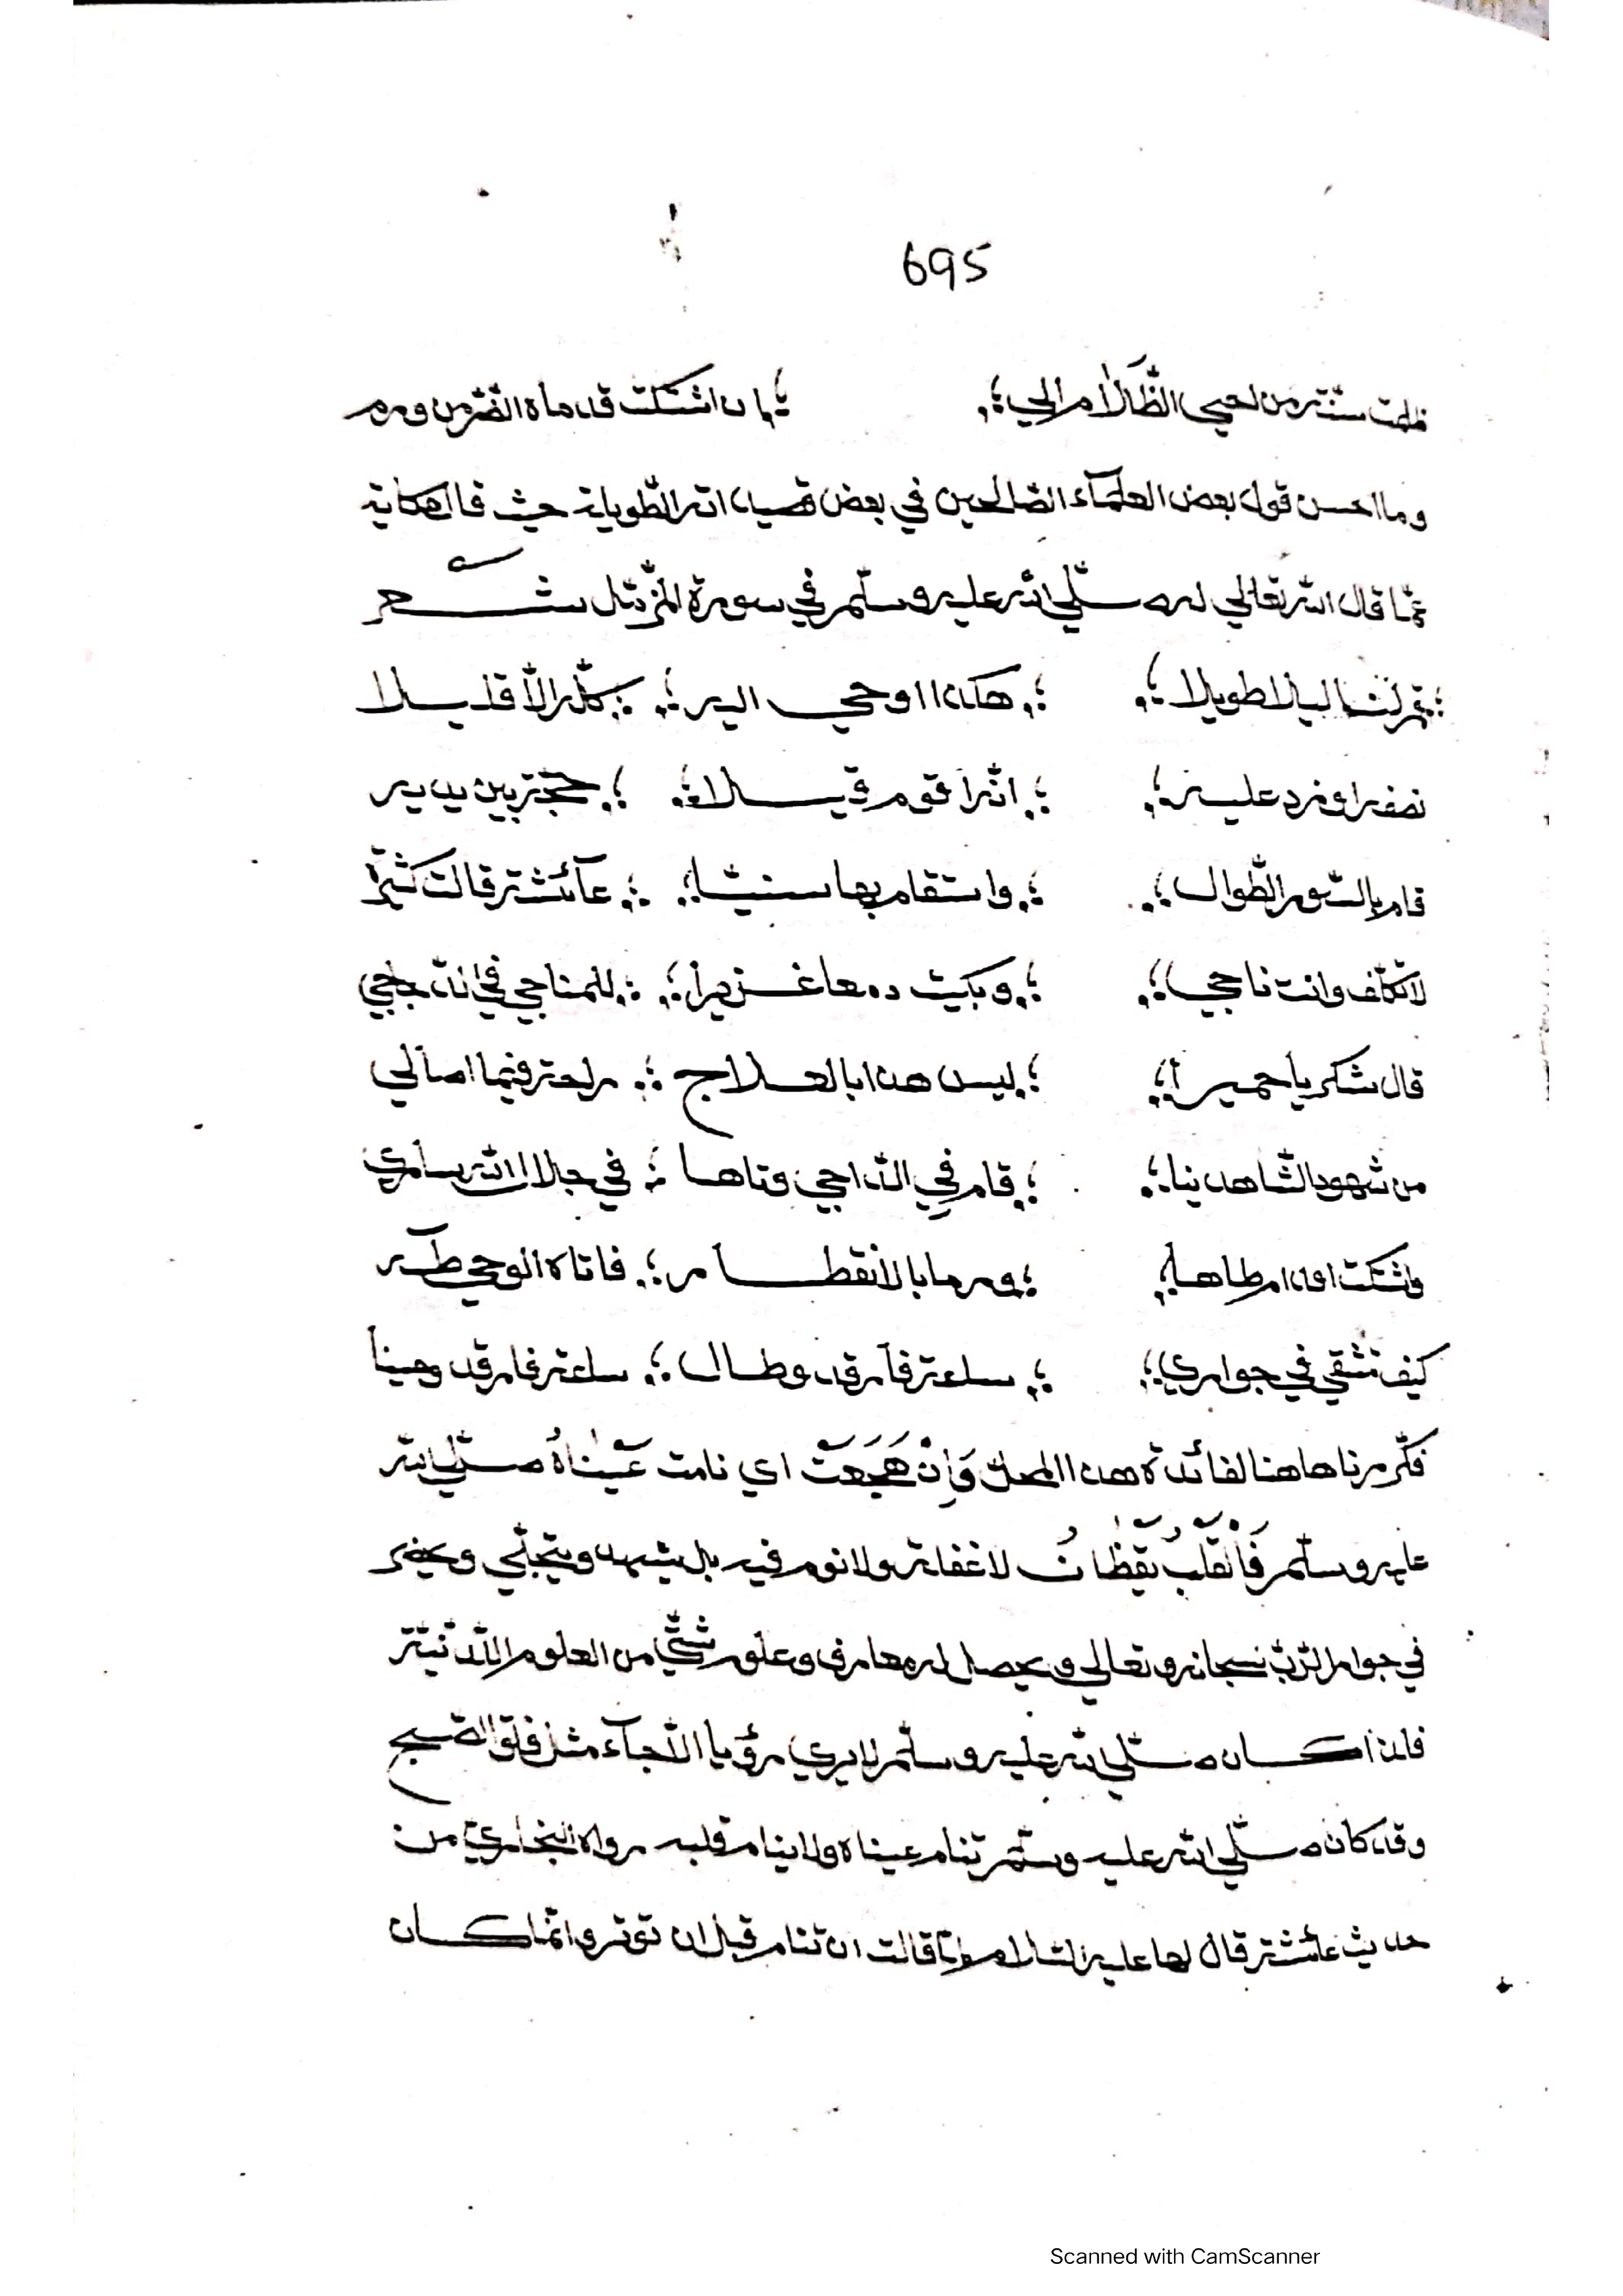 695
ظلمت سنة من احيى الظلام الي ؛ ان اشتكت قدماه الضر من ورم
وما احسن قول بعض العلمآء الصالحين في بعض قصيداته الطويلة حيث قال حكاية
عمّا قال الله تعالى له صلّي الله عليه وسلّم في سورة المزمّل شعر
قم لنا ليلا طويلا ؛ هكذا اوحي اليه ؛ كلّه الّا قليلا
نصفه او زد عليه ؛ اثرا قوم قيلا ؛ حجّة بين يديه
قام بالسّور الطّوال ؛ واستقام بها سنينا ؛ عآئشة قالت كثيرا
لا تكلّف وانت ناجي ؛ وبكيت دمعا غزيرا ؛ للمناجي في الدّياجي
قال شكر يا حميرا ؛ ليس هذا بالعلاج ؛ راحة فيما اصالي
من شهود الشّاهدينا ؛ قام في الدّاجي وتاها ؛ في جلال الله ساري
فاشتكت اقدام طاها ؛ ورما بالانقطار ؛ فاتاه الوحي طه
كيف تشقي في جواري ؛ ساعة فارقد وطال ؛ ساعة فارقد وحينا
فكرّرناها هنا لفائدة هذا المحلّ وَإِنْ هَجَعَتْ اي نامت عَيْنَاهُ صلّي الله
عليه وسلّم فَالْقَلْبُ يَقْظَانُ لا غفلة ولا نوم فيه بل يشهد ويتجلّي ويحضر
في جوار الرّبّ سبحانه وتعالي ويحصل له معارف وعلوم شتّي من العلوم اللّدنّيّة
فلذا كان صلّي الله عليه وسلّم لا يري رؤيا الّا جآء مثل فلق الصّبح
وقد كان صلّي الله عليه وسلّم تنام عيناه ولا ينام قلبه رواه البخاريّ من
حديث عائشة قال لها عليه السّلام لمّا قالت ان تنام قبل ان توتر وانّما كان
Scanned with CamScanner